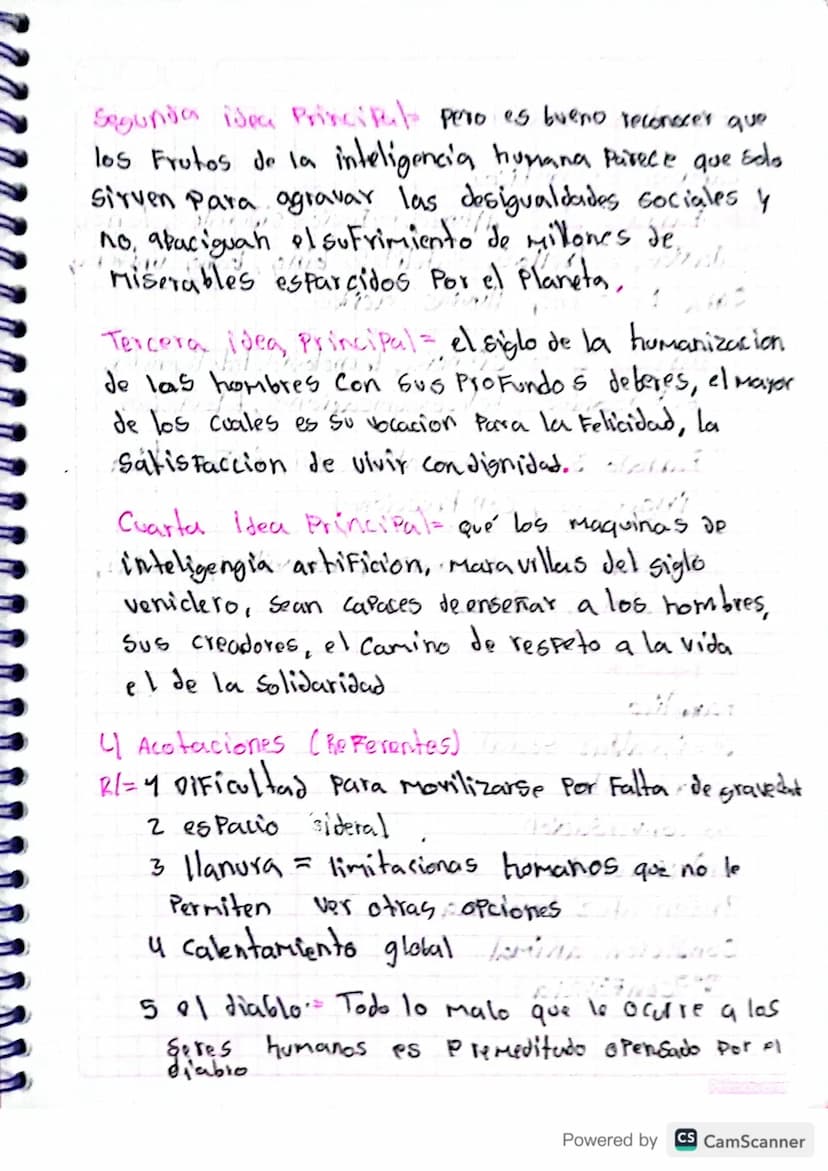 Segunda idea Principal= pero es bueno reconocer que
los Frutos de la inteligencia humana Parece que solo
sirven para agravar las desigualdades sociales y
no, apaciguan el sufrimiento de millones de
miserables esparcidos Por el Planeta.
Tercera idea Principal= el siglo de la humanizacion
de las hombres Con sus Profundos deberes, el mayor
de los cuales es su vocacion Para la Felicidad, la
satisfaccion de vivir con dignidad.
Cuarta idea Principal= qué los maquinas de
inteligengia artificion, maravillas del siglo
veniclero, sean capaces de enseñar a los hombres,
sus creadores, el camino de respeto a la vida
el de la solidaridad
4 Acotaciones (Referentes)
R/= 1 Dificultad para movilizarse por Falta de gravedat
2 espacio sideral
3 llanura = limitacionas homanos que no le
Permiten ver otras opciones
4 calentamiento global
5 el diablo = Todo lo malo que le ocurre a los
seres humanos es Premeditado o Pensado por el
diablo
Powered by CS CamScanner